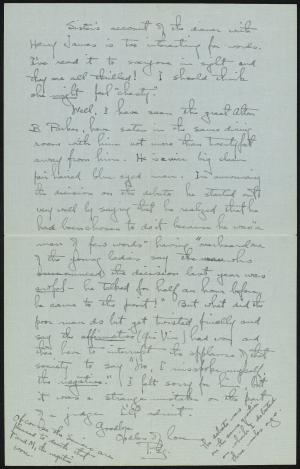 Sister's account of the dinner with
Henry James is too interesting for words.
I've read it to everyone in sight and
they are all thrilled! I should think
she might feel "chesty."
Well, I have seen the great Alton
B. Parker, have eaten in the same dining
room with him not more than twenty feet
away from him. He is a nice big clean
fair haired blue eyed man. In announcing
the decision on the debate he started out
very well by saying that he realized that he
had been chosen to do it because he was "a
man of few words" having "overheard one
of the young ladies say the man who
announced the decision last year was
awful – he talked for half an hour before
he came to the point!" But what did the
poor man do but get twisted finally and
say the affirmative had won and
then have to interrupt the applause of that
society to say "No, I misspoke myself,
the negative." I felt sorry for him. But
it was a strange mistake on the part
of a judge I'll admit.
Goodbye
of love
The debate was
on the
which we debated
three
Of course the
to
the negative
won.